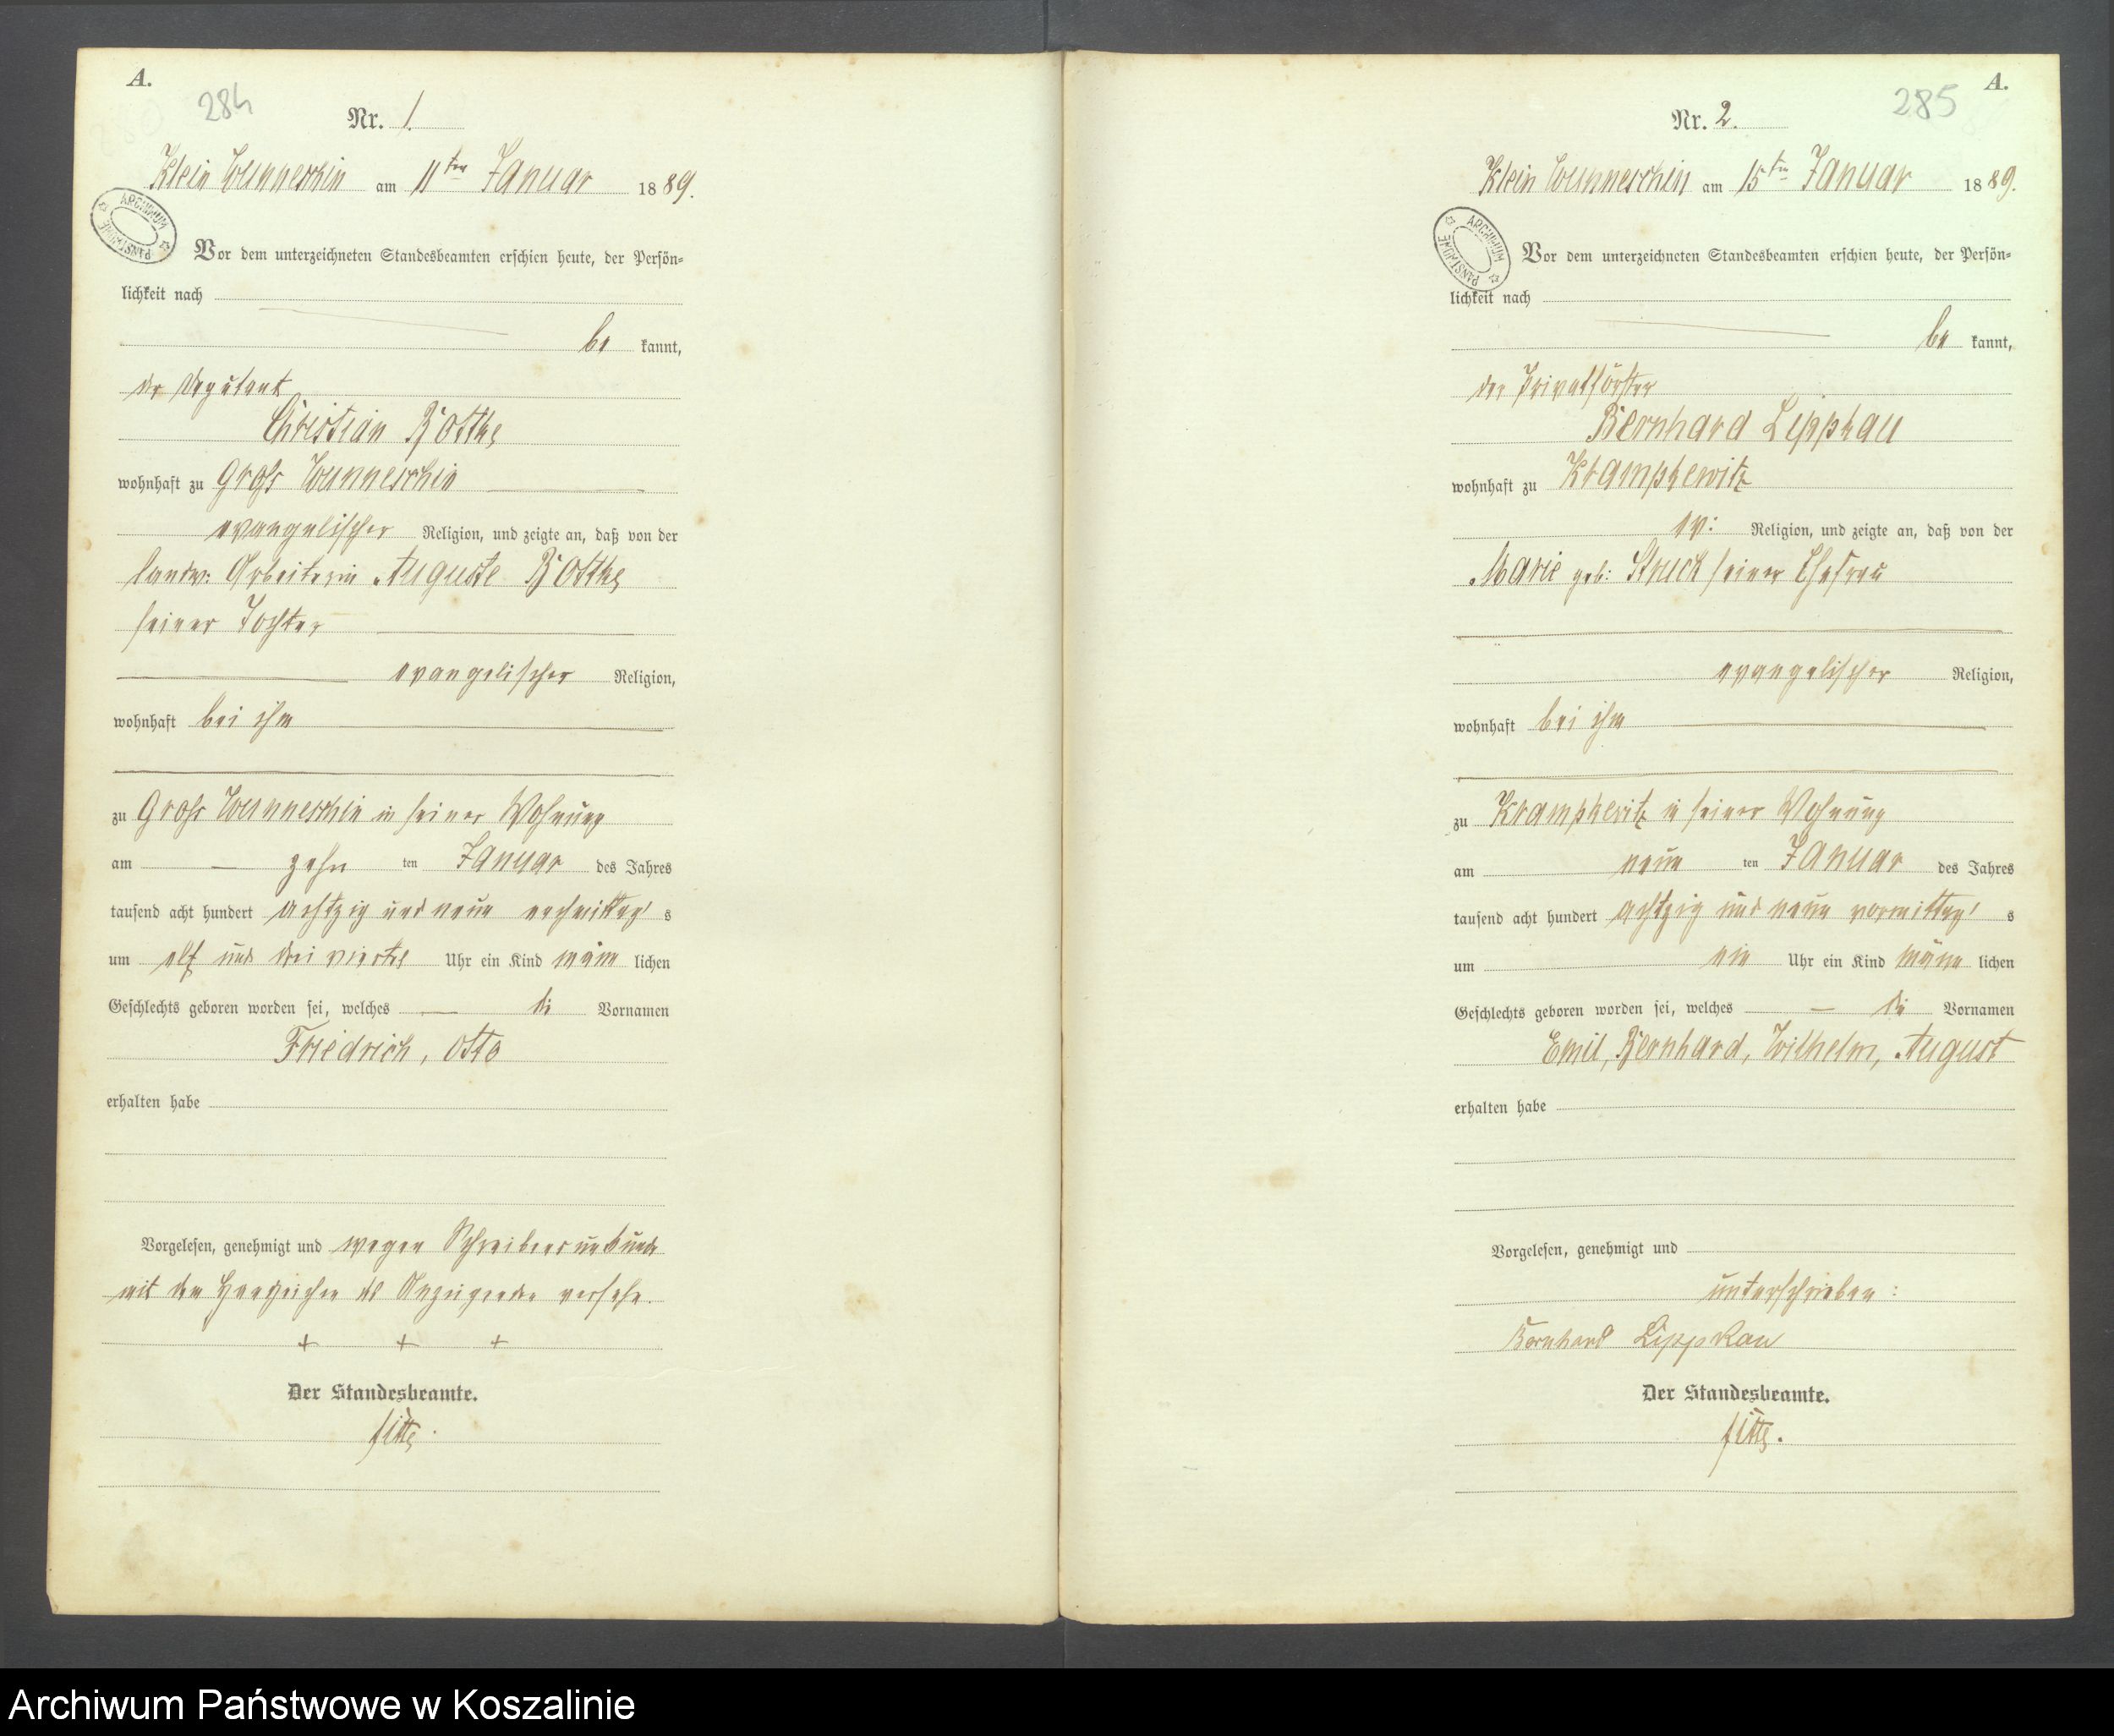 A.
284
Nr. 1.
Klein Wunneschin am 11ten Januar 1889.
ARCHIWUM PAŃSTWOWE
Vor dem unterzeichneten Standesbeamten erschien heute, der Persön-
lichkeit nach
be kannt,
der Deputant
Christian Bottke
wohnhaft zu Groß Wunneschin
evangelischer Religion, und zeigte an, daß von der
landw: Arbeiterin Auguste Bottke
seiner Tochter
evangelischer Religion,
wohnhaft bei ihm
zu Groß Wunneschin in seiner Wohnung
am zehn ten Januar des Jahres
tausend acht hundert achtzig und neun nachmittag's
um elf und drei viertel Uhr ein Kind männ lichen
Geschlechts geboren worden sei, welches die Vornamen
Friedrich, Otto
erhalten habe
Vorgelesen, genehmigt und wegen Schreibensunkunde
mit den Handzeichen des Anzeigenden versehn.
+ + +
Der Standesbeamte.
A.
285
Nr. 2.
Klein Wunneschin am 15ten Januar 1889.
ARCHIWUM PAŃSTWOWE
Vor dem unterzeichneten Standesbeamten erschien heute, der Persön-
lichkeit nach
be kannt,
der Privatförster
Bernhard Lippkau
wohnhaft zu Krampkewitz
ev: Religion, und zeigte an, daß von der
Marie geb: Struck seiner Ehefrau
evangelischer Religion,
wohnhaft bei ihm
zu Krampkewitz in seiner Wohnung
am neun ten Januar des Jahres
tausend acht hundert achtzig und neun vormittag's
um ein Uhr ein Kind männ lichen
Geschlechts geboren worden sei, welches die Vornamen
Emil, Bernhard, Wilhelm, August
erhalten habe
Vorgelesen, genehmigt und
unterschrieben:
Bernhard Lippkau
Der Standesbeamte.
Archiwum Państwowe w Koszalinie